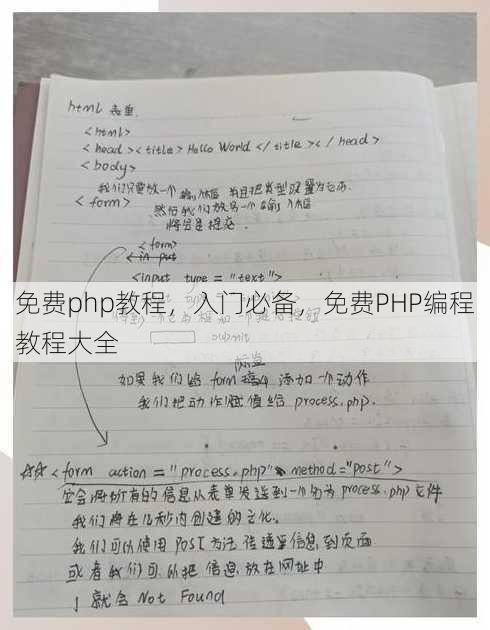 html 表单
<html>
<head><title>Hello World</title></head>
<body>
我们只要放一个输入框 并且把类型设置为它而.
<form> 然后我们放另一个输入框
将会是提交.
<form>
<input
<input type = "text">
免费php教程，入门必备，免费PHP编程
教程大全
submit
标签
如果我们给 form 添加一个动作
我们把动作赋值给 process.php.
<form action = "process.php" method = "post">
它会将所有的信息从表单发送到一个名为 process.php 文件
我们将在几秒内创建
我们可以使用 POST 方法 传递 信息 到页面
或者我们可以把信息放在网址中
就会 Not Found